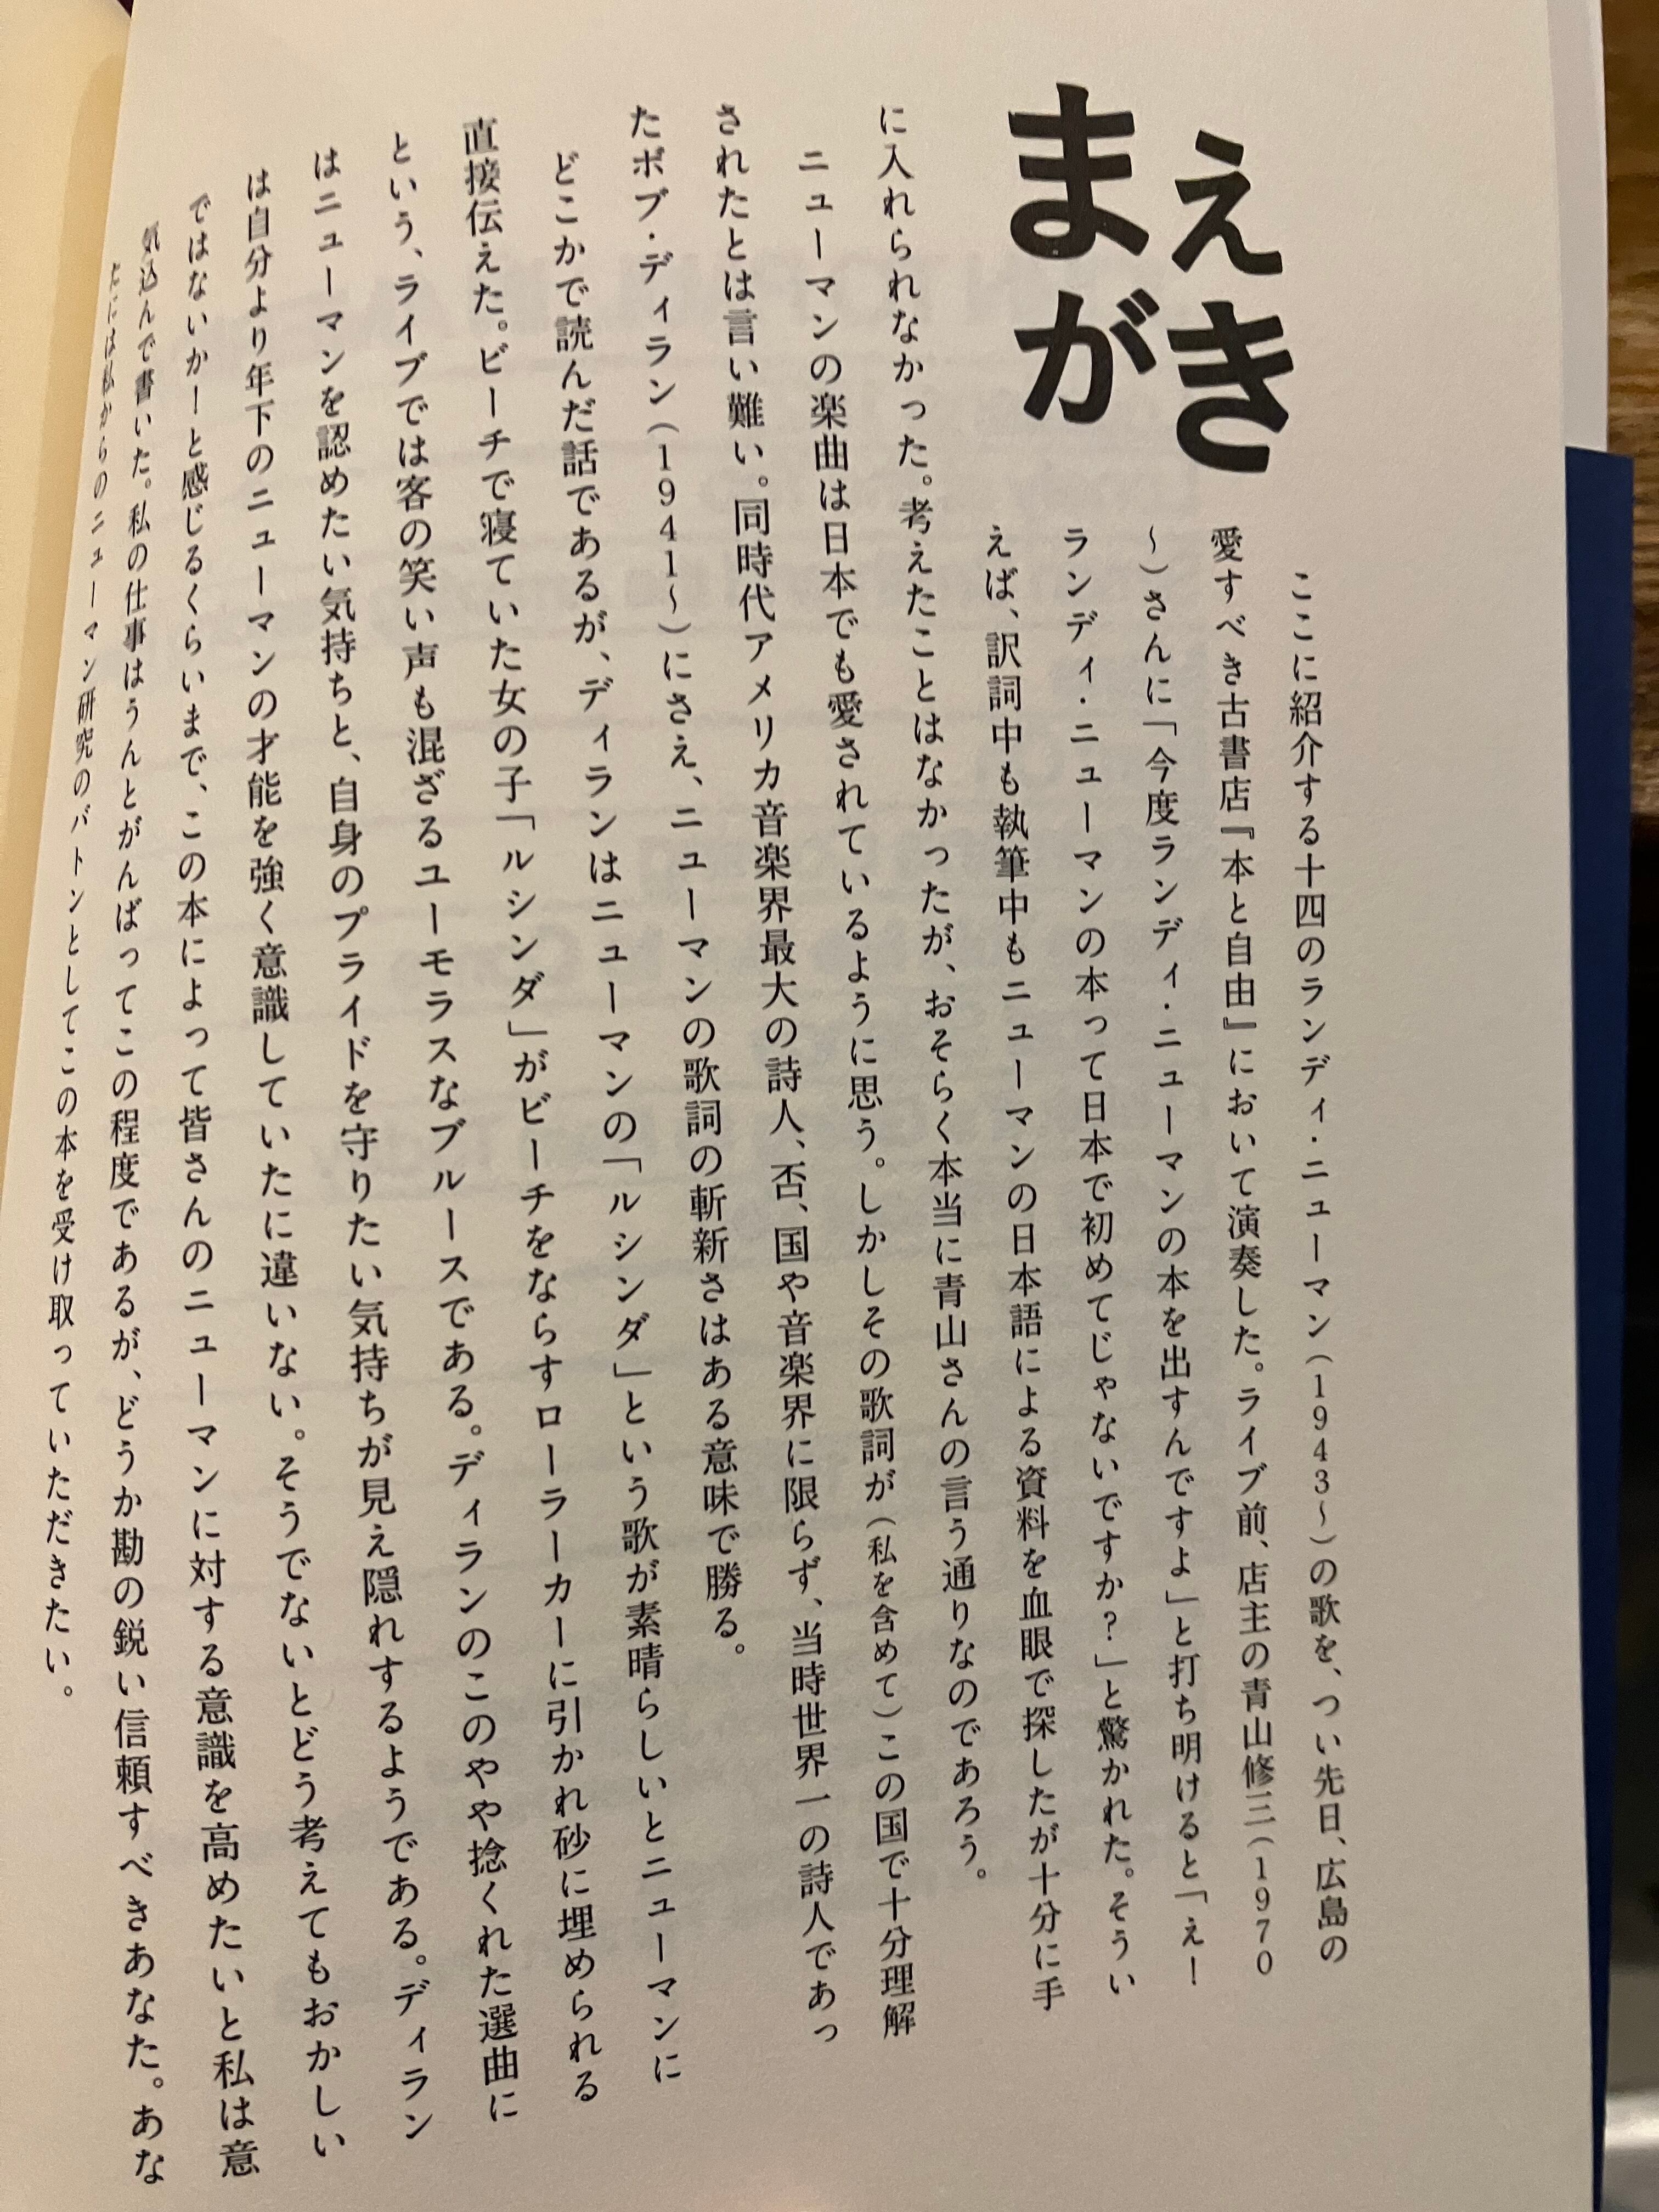 まえ
がき
ここに紹介する十四のランディ・ニューマン(1943〜)の歌を、つい先日、広島の
愛すべき古書店『本と自由』において演奏した。ライブ前、店主の青山修三(1970
〜)さんに「今度ランディ・ニューマンの本を出すんですよ」と打ち明けると「え!
ランディ・ニューマンの本って日本で初めてじゃないですか?」と驚かれた。そうい
えば、訳詞中も執筆中もニューマンの日本語による資料を血眼で探したが十分に手
に入れられなかった。考えたことはなかったが、おそらく本当に青山さんの言う通りなのであろう。
ニューマンの楽曲は日本でも愛されているように思う。しかしその歌詞が(私を含めて)この国で十分理解
されたとは言い難い。同時代アメリカ音楽界最大の詩人、否、国や音楽界に限らず、当時世界一の詩人であっ
たボブ・ディラン(1941〜)にさえ、ニューマンの歌詞の斬新さはある意味で勝る。
どこかで読んだ話であるが、ディランはニューマンの「ルシンダ」という歌が素晴らしいとニューマンに
直接伝えた。ビーチで寝ていた女の子「ルシンダ」がビーチをならすローラーカーに引かれ砂に埋められる
という、ライブでは客の笑い声も混ざるユーモラスなブルースである。ディランのこのやや捻くれた選曲に
はニューマンを認めたい気持ちと、自身のプライドを守りたい気持ちが見え隠れするようである。ディラン
は自分より年下のニューマンの才能を強く意識していたに違いない。そうでないとどう考えてもおかしい
ではないかーと感じるくらいまで、この本によって皆さんのニューマンに対する意識を高めたいと私は意
気込んで書いた。私の仕事はうんとがんばってこの程度であるが、どうか勘の鋭い信頼すべきあなた。あな
たには私からのニューマン研究のバトンとしてこの本を受け取っていただきたい。